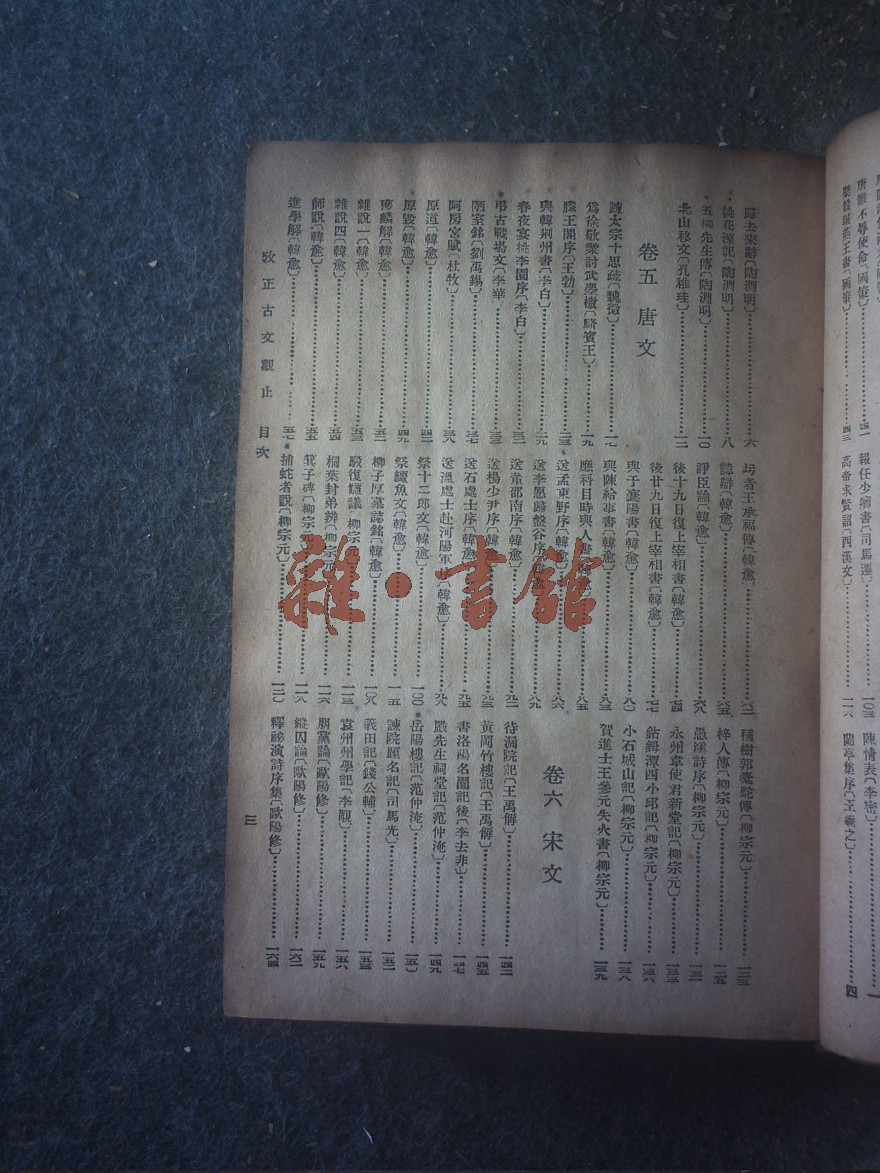 唐雎不辱使命〔國策〕……四一
樂毅報燕王書〔國策〕……四三
報任少卿書〔司馬遷〕……一〇三
高帝求賢詔〔西漢文〕……一一六
陳情表〔李密〕……一
蘭亭集序〔王羲之〕……四
歸去來辭〔陶淵明〕……六
桃花源記〔陶淵明〕……八
五柳先生傳〔陶淵明〕……一〇
北山移文〔孔稚珪〕……一二
卷五 唐文
諫太宗十思疏〔魏徵〕……一七
爲徐敬業討武曌檄〔駱賓王〕……一九
滕王閣序〔王勃〕……二三
與韓荊州書〔李白〕……二九
春夜宴桃李園序〔李白〕……三二
弔古戰場文〔李華〕……三三
陋室銘〔劉禹錫〕……三七
阿房宮賦〔杜牧〕……三八
原道〔韓愈〕……四二
原毀〔韓愈〕……四九
獲麟解〔韓愈〕……五二
雜說一〔韓愈〕……五三
雜說四〔韓愈〕……五四
師說〔韓愈〕……五五
進學解〔韓愈〕……五七
圬者王承福傳〔韓愈〕……六二
諱辯〔韓愈〕……六五
諍臣論〔韓愈〕……六八
後十九日復上宰相書〔韓愈〕……七四
後廿九日復上宰相書〔韓愈〕……七七
與于襄陽書〔韓愈〕……八〇
與陳給事書〔韓愈〕……八三
應科目時與人書……八五
送孟東野序〔韓愈〕……八六
送李愿歸盤谷序……八九
送董邵南序〔韓愈〕……九二
送楊少尹序〔韓愈〕……九三
送石處士序〔韓愈〕……九五
送溫處士赴河陽軍序〔韓愈〕……九八
祭十二郎文〔韓愈〕……一〇〇
祭鱷魚文〔韓愈〕……一〇五
柳子厚墓誌銘〔韓愈〕……一〇八
駁復讎議〔柳宗元〕……一一三
桐葉封弟辨〔柳宗元〕……一一六
箕子碑〔柳宗元〕……一一八
捕蛇者說〔柳宗元〕……一二〇
種樹郭橐駝傳〔柳宗元〕……一二三
梓人傳〔柳宗元〕……一二五
愚溪詩序〔柳宗元〕……一三一
永州韋使君新堂記〔柳宗元〕……一三三
鈷鉧潭西小邱記〔柳宗元〕……一三六
小石城山記〔柳宗元〕……一三八
賀進士王參元失火書〔柳宗元〕……一三九
卷六 宋文
待漏院記〔王禹偁〕……一四二
黃岡竹樓記〔王禹偁〕……一四五
書洛陽名園記後〔李去非〕……一四七
嚴先生祠堂記〔范仲淹〕……一四九
岳陽樓記〔范仲淹〕……一五〇
諫院題名記〔司馬光〕……一五二
義田記〔錢公輔〕……一五三
袁州州學記〔李覯〕……一五六
朋黨論〔歐陽修〕……一五九
縱囚論〔歐陽修〕……一六二
釋祕演詩序集〔歐陽修〕……一六四
攷正古文觀止 目次
三
雜·書館